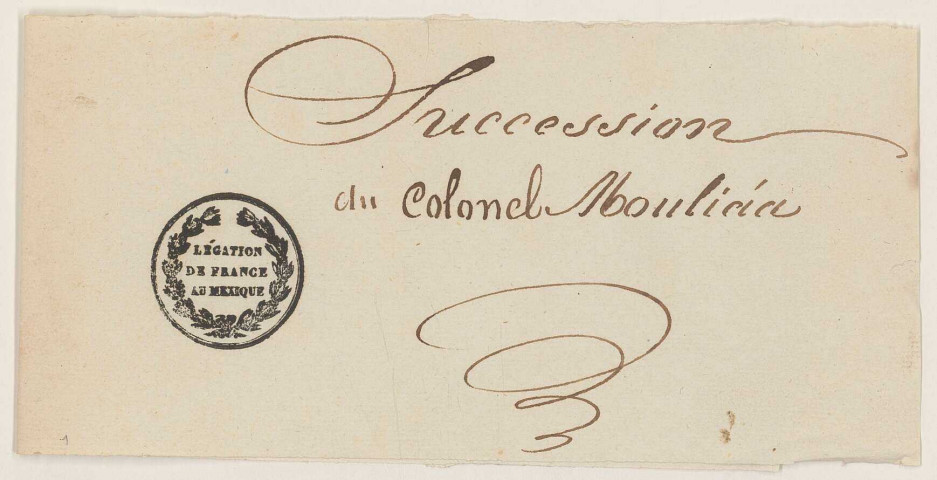 Succession
du Colonel Mouliáa
LÉGATION
DE FRANCE
AU MEXIQUE
1